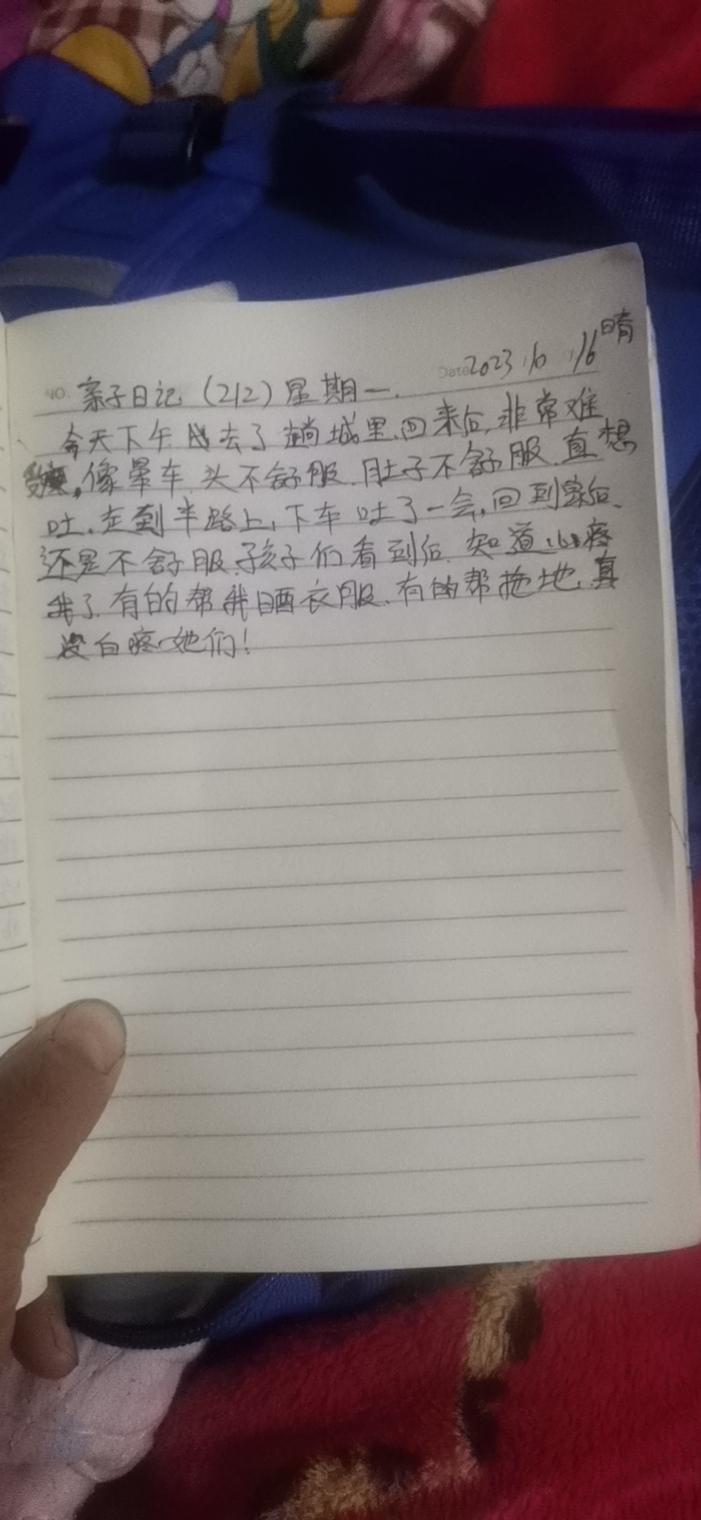 Date 2023.10.16 晴
NO. 亲子日记(212)星期一.
今天下午出去了趟城里.回来后,非常难
受,像晕车.头不舒服.肚子不舒服.直想
吐.走到半路上,下车吐了一会,回到家后.
还是不舒服.孩子们看到后.知道心疼
我了.有的帮我晒衣服.有的帮拖地.真
没白疼她们!